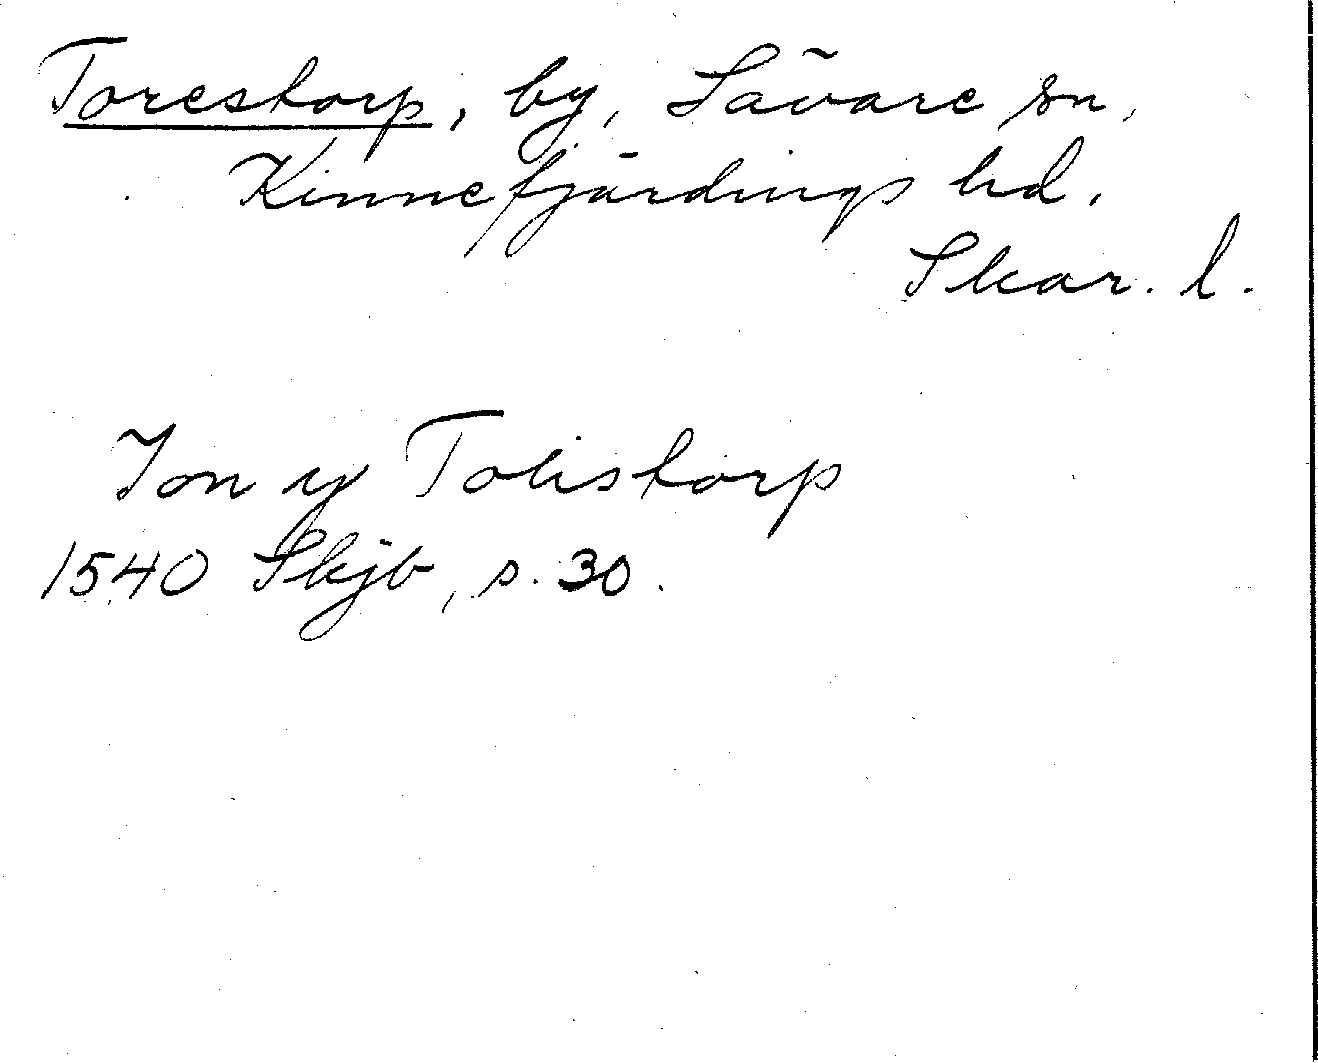 Torestorp, by, Sävare sn,
Kinnefjärdings hd.
Skar. l.
Jon y Tolistorp
1540 Skjb, s. 30.